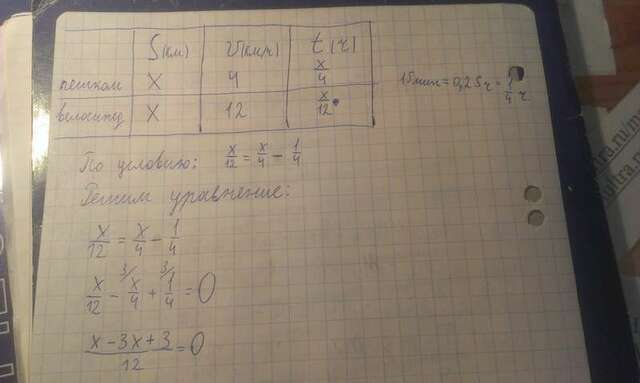 S(км) v(км/ч) t(ч)
пешком x 4 x/4
велосипед x 12 x/12
15 мин = 0,25 ч = 1/4 ч
По условию: x/12 = x/4 - 1/4
Решим уравнение:
x/12 = x/4 - 1/4
x/12 - 3/ x/4 + 3/ 1/4 = 0
(x - 3x + 3)/12 = 0